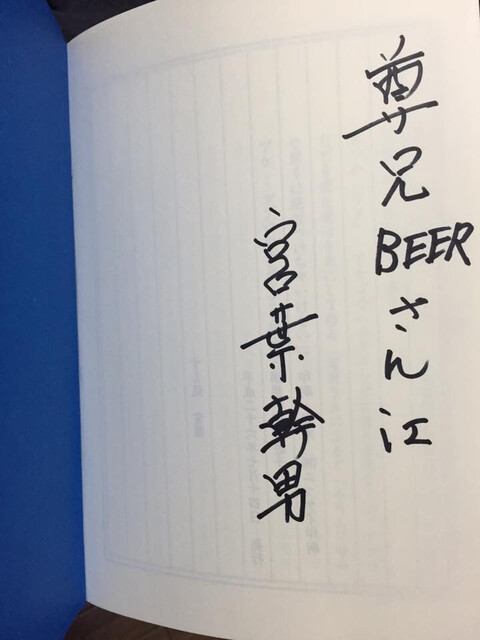 尊兄BEERさん江
宮葉幹男